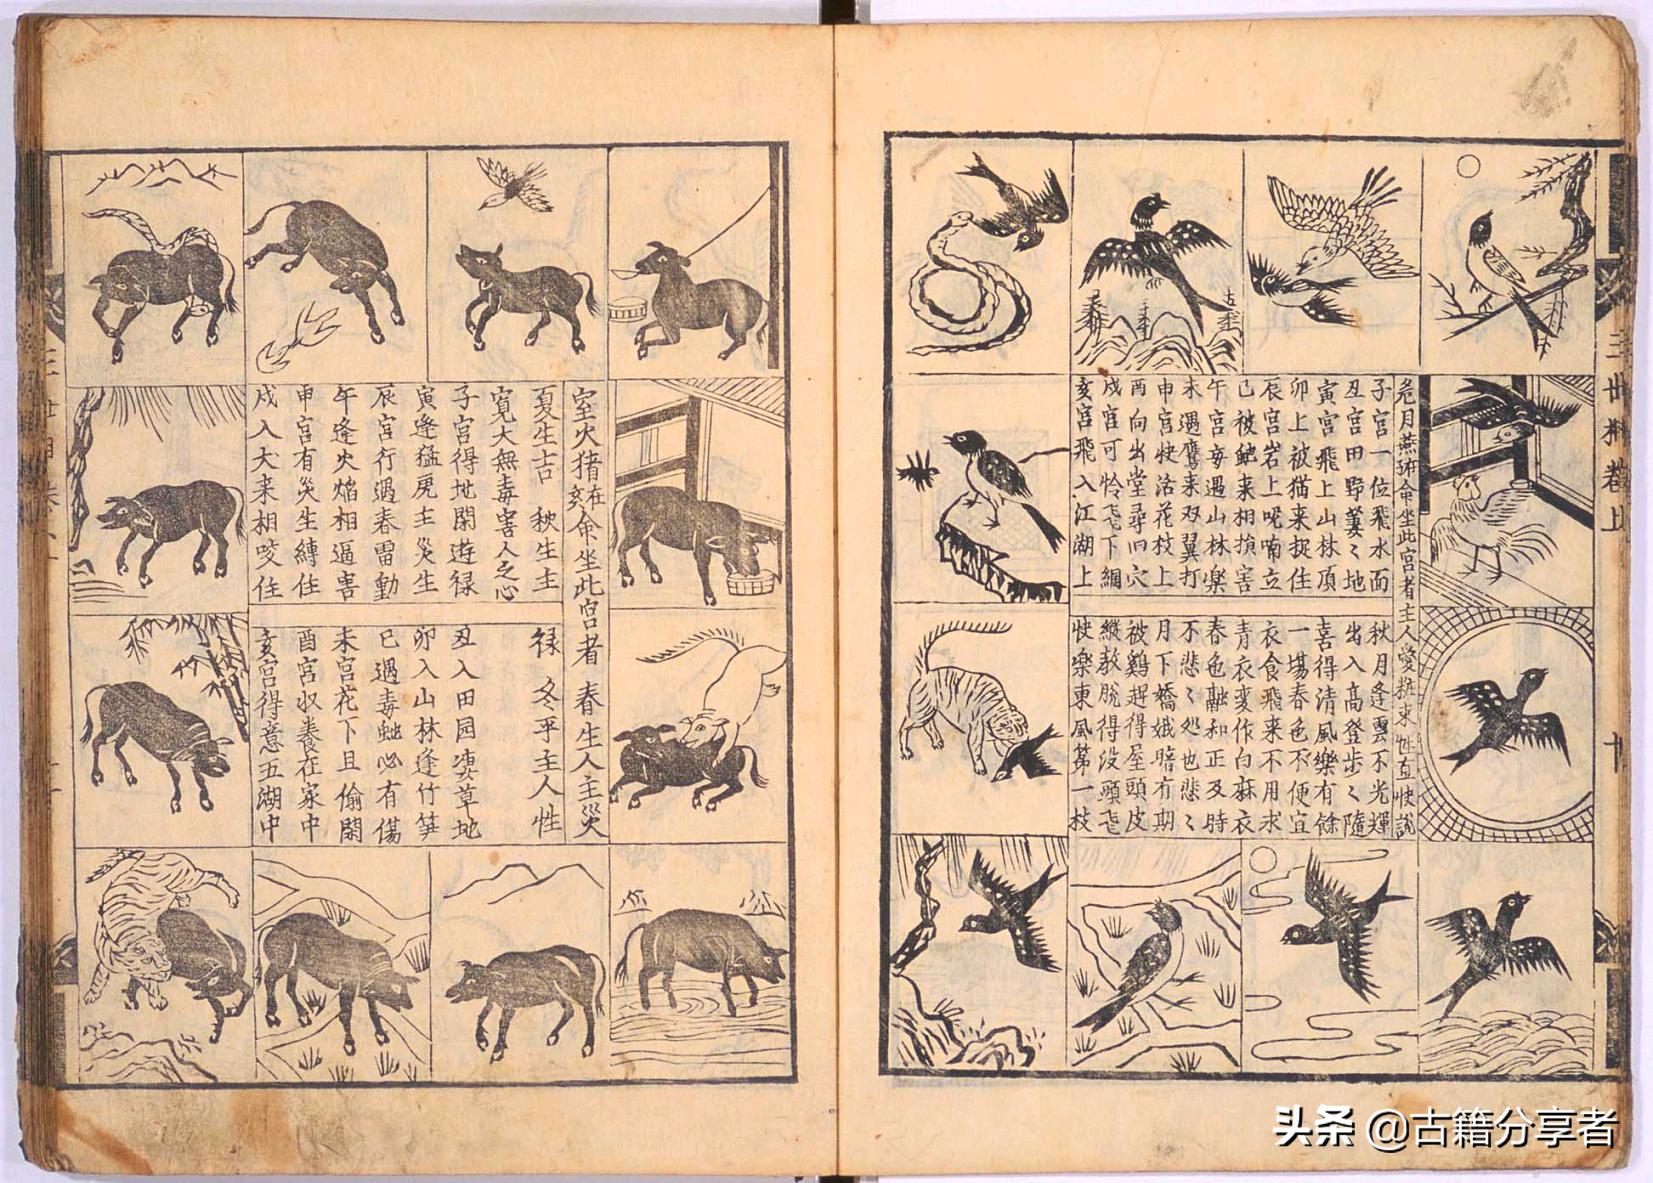 三世相卷上
十
危月燕命坐此宮者主人愛粧束性直快說
子宮一位飛水面 秋月逢雲不光輝
丑宮田野萋〻地 出入高登步〻隨
寅宮飛上山林頂 喜得清風樂有餘
卯上被猫来捉住 一場春色不便宜
辰宮岩上呢喃立 衣食飛来不用求
巳被虵来相損害 青衣变作白麻衣
午宮每遇山林樂 春色融和正及時
未遇鷹来双翼打 不悲〻处也悲〻
申宮快活花枝上 月下嬌娥暗有期
酉向出堂尋旧穴 被鷄趕得屋頭皮
戌宮可怜飞下綱 縱教脫得没頭飞
亥宮飛入江湖上 快樂東風第一枝
室火猪在亥命坐此宮者 春生人主災
夏生吉 秋生主禄 冬平主人性
寛大無毒害人之心
子宮得地閑遊禄 丑入田园凄草地
寅逢猛虎主災生 卯入山林逢竹笋
辰宮行過春雷動 巳遇毒虵必有傷
午逢火焰相逼害 未宮花下且偷閑
申宮有災生縛住 酉宮収養在家中
戌入犬来相咬住 亥宮得意五湖中
头条 @古籍分享者